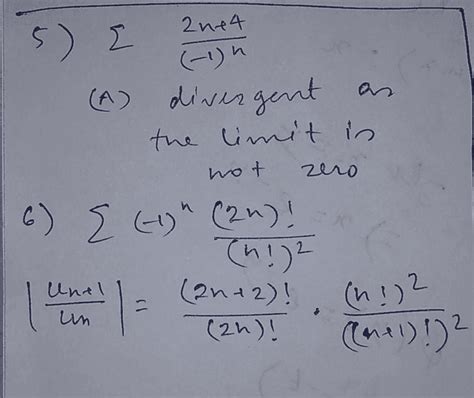 5) Σ (2n+4)/(-1)^n
(A) divergent as
the limit is
not zero
6) Σ (-1)^n (2n)!/(n!)^2
|Un+1/Un| = (2n+2)!/(2n)! . (n!)^2/((n+1)!)^2